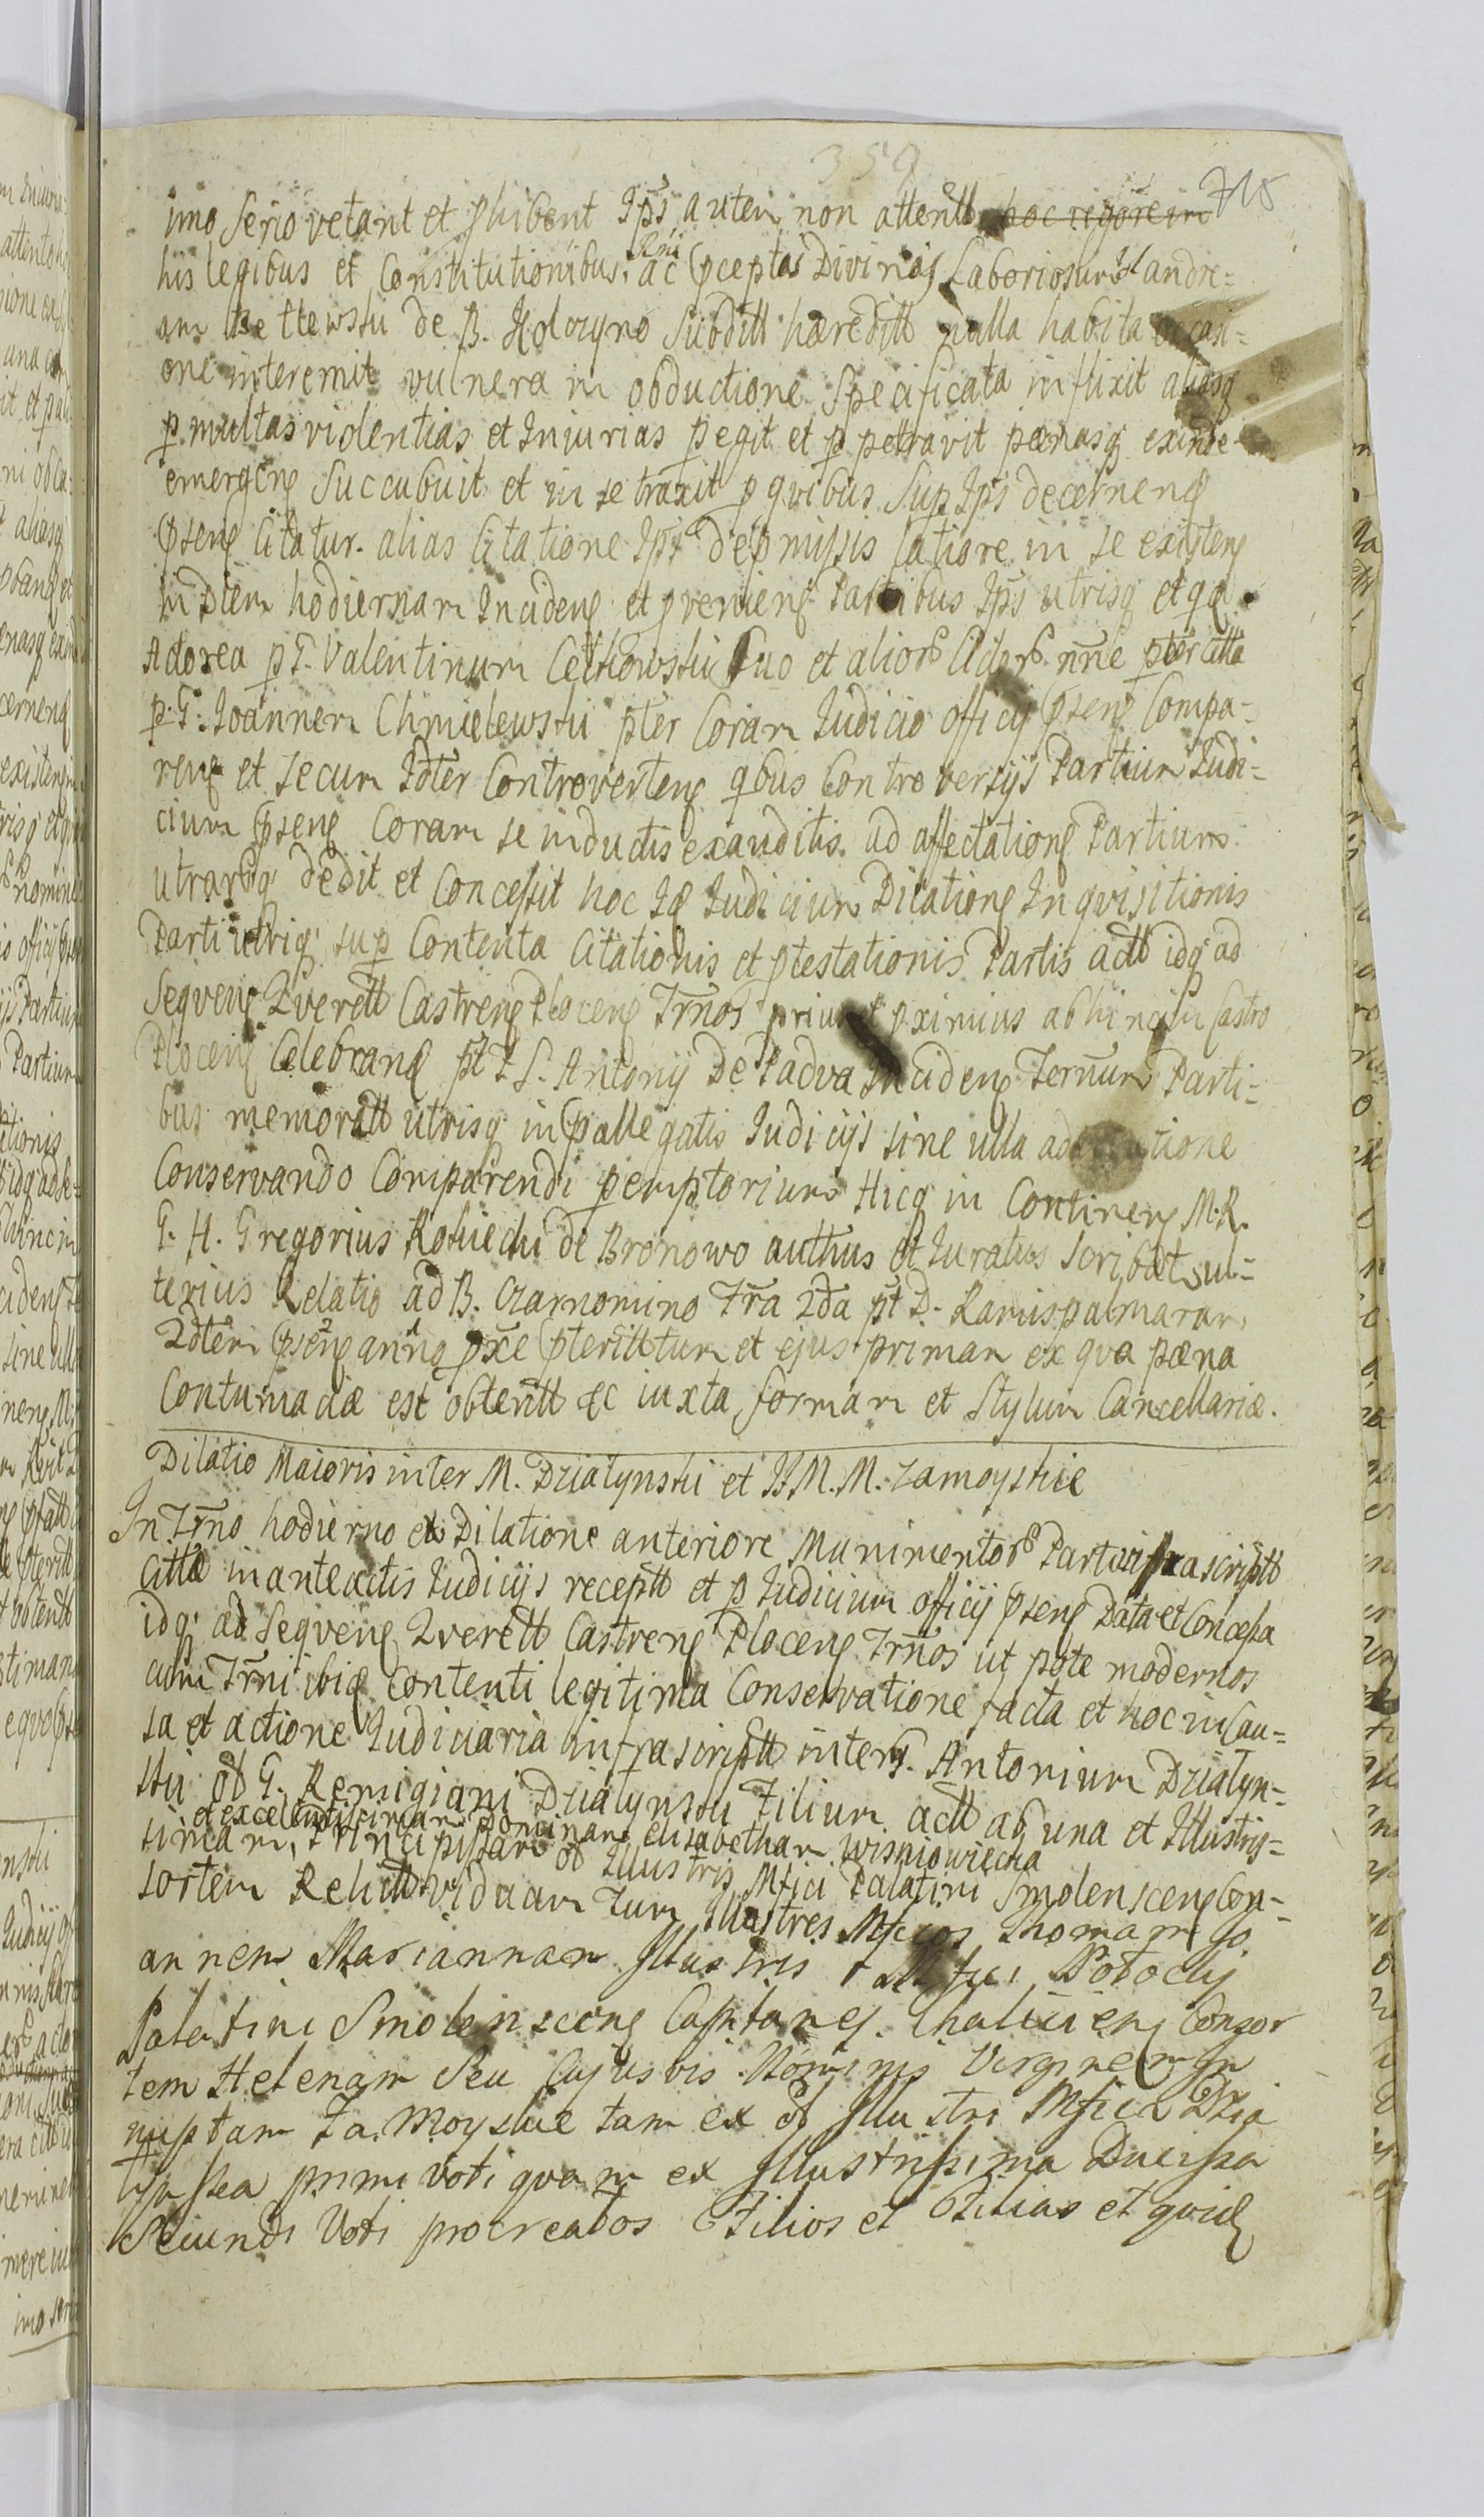 359
718
imo serio vetant et phibent Ips autem non attentt hoc rigorem
his legibus et Constitutionibus, Rni ac pceptas Divinas Laboriosum olandre-
am de B. subditt hæreditt nulla habita occasi-
one interemit vulnera in obductione specificata inflixit aliasq
p multas violentias et Injurias pegit et p petravit pænasq exinde
emergeng succubuit et in se traxit p qvibus sup Ips decerneng
pseng Citatur. alias Citatione Ips de pmissis latiore in se existeng
In Diem hodiernam Incideng et pvenieng Partibus Ips utrisq et qd
Actorea p G. Valentinum suo et alior Actor nne pter Citta
p. G. Ioannem Chmielewski pter Coram Iudicio officij pseng Compa-
reng et secum Idter Controverteng qbus Controversijs Partium Iudi-
cium pseng Coram se inductis exauditis. ad affectationg Partium
utrarq dedit et Concessit hoc Id Iudicium Dilationg Inqvisitionis
Parti utriq sup Contenta Citationis et ptestationis Partis actt idq ad
seqveng Qverett Castreng Ploceng Trnos prius et pximius abhinc in Castro
Ploceng Celebrand pt F S. Antonij De Padva Incideng Ternum Parti-
bus memoratt utrisq in pallegatis Iudicijs sine ulla adcitatione
Conservando Comparendi peremptorium Hicq in Contineng M. R.
G. H. Gregorius de Bronowo authus et Iuratus scribæt, ul-
terius Relatio ad B. Czarnomino Fra 2da pt D. Ramispalmarum
2dtem pseng anno pxe pteritt tum et ejus primam ex qva pæna
Contumaciæ est obtentt &c iuxta formam et stylum Cancellariæ.
Dilatio Maioris inter M. Dzialynski et II. M. M. Zamoyskie
In Trno hodierno ex Dilatione anteriore Munimentor Parti infrascriptt
Cittæ in anteactis Iudicijs receptt et p Iudicium officij pseng Data et Concessa
idq ad seqveng Qverett Castreng Ploceng Trnos ut pote modernos
cum Trni ibiq Contenti legitima Conservatione facta et hoc in Cau-
sa et actione Iudiciaria infrascriptt inter G. Antonium Dzialyn-
ski olt G. Remigiani Dzialynski Filium actt ab una et Illustris-
et excellentissimam Dominam elisabetham wisniowiecka
simam, Principissam olt Illustris Mfici Palatini Smolensceng Con-
sortem Relictt viduam Tum Illustres Mficos Thomam Jo
annem Mariannam Illustris Mfici Potocki
Palatini Smolensceng Capitanej. Chalicieng Consor
tem Helenam seu Cujusvis Nominis Virginem In
nuptam Zamoyskie tam ex olt Illustri Mfica Dzia
lynska primi voti qvam ex Illustrissima Ducissa
secundi Voti procreatos Filios et Filias et quid